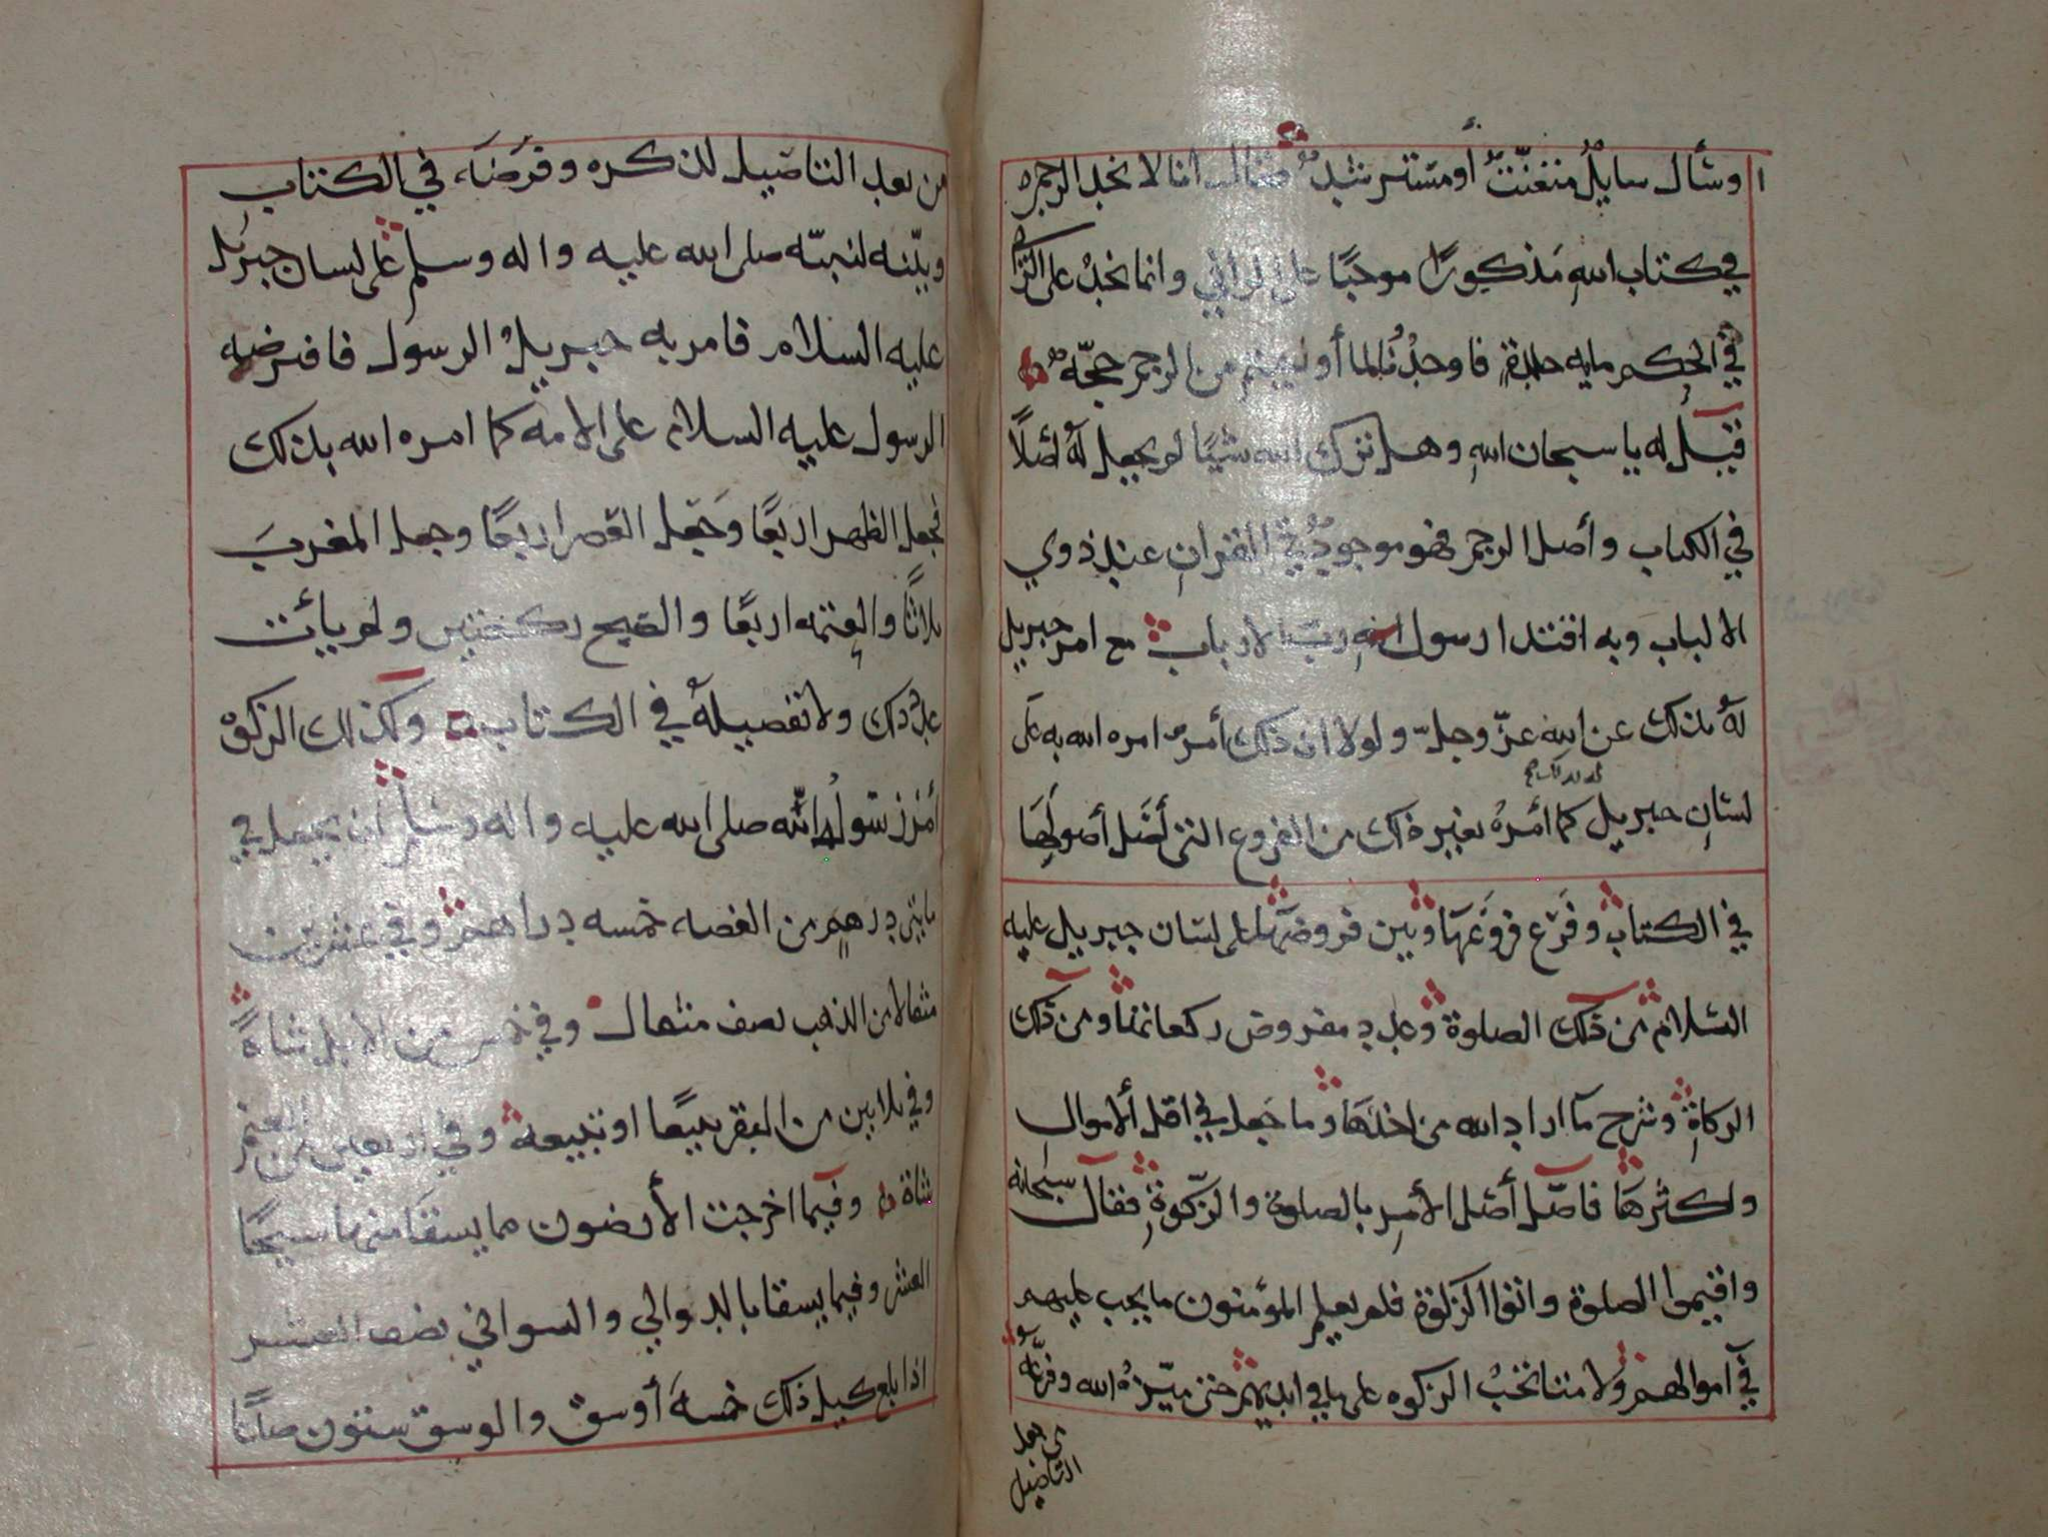 وسأل سايلٌ متعنّتٌ أو مسترشدٌ فقال انا لا نجد الرجم
في كتاب اللهِ مَذكورًا موجبًا على الزاني وانما نجدُ على الزاني
في الحكم مايه جلدةٍ فاوجدُنا لما أوجبتم من الرجم حجّه
فقيل له يا سبحان اللهِ وهل ترك الله شيًا لم يجعل لهُ أصلًا
في الكتاب وأصل الرجم فهو موجودٌ في القران عند ذوي
الالباب وبه اقتدا رسول الله ربّ الارباب مع امر جبريل
لهُ بذلك عن اللهِ عزّ وجلّ ولولا ان ذلك أمرٌ امره الله به على
لسانِ جبريل كما أمرهُ بغير ذلك من الفروع التي أصّل أصولَها
في الكتاب وفَرّع فروعَها وبين فروضَها على لسان جبريل عليه
السلام من ذلك الصلوة وعدد مفروض ركعاتها ومن ذلك
الزكاةِ وشرح ما اراد الله من اخذها وما جعل في اقل الاموالِ
وكثرها فاصّل أصل الأمرِ بالصلوة والزكوةِ فقال سبحانه
واقيموا الصلوة واتوا الزكوة فلم يعلم المؤمنون ما يجب عليهم
في أموالهم ولا متا تجبُ الزكوه على ما في ايديهم حتى ميّزهُ الله وفرّعهُ
من بعد
التاصيل
من بعد التاصيل لذكره وفرَضَه في الكتاب
وبيّنه لنبيّه صلى الله عليه واله وسلم على لسان جبريل
عليه السلام فامر به جبريلُ الرسول فافترضه
الرسول عليه السلام على الامه كما امره الله بذلك
فجعل الظهر اربعًا وجَعل العَصر اربعًا وجعل المغربَ
ثلاثًا والعِتمه اربعًا والصبح ركعتين ولم يأت
عددُ ذلك ولا تفصيلهُ في الكتاب وكذلك الزكوة
أمرَ رسولُه اللّه صلى الله عليه واله وسلم ان يجعل في
مايتي درهمٍ من الفضه خمسه دراهم وفي عشرين
مثقالا من الذهب نصف مثقال وفي خمس من الابل شاةً
وفي ثلاثين من البقر تبيعًا او تبيعه وفي اربعين من الغنم
شاة وفيما اخرجت الأرضون مما يسقا منها سيحًا
العشر وفيما يسقا بالدوالي والسواني نصف العشر
اذا بلغ كيل ذلك خمسهَ أوسق والوسق ستون صاعًا